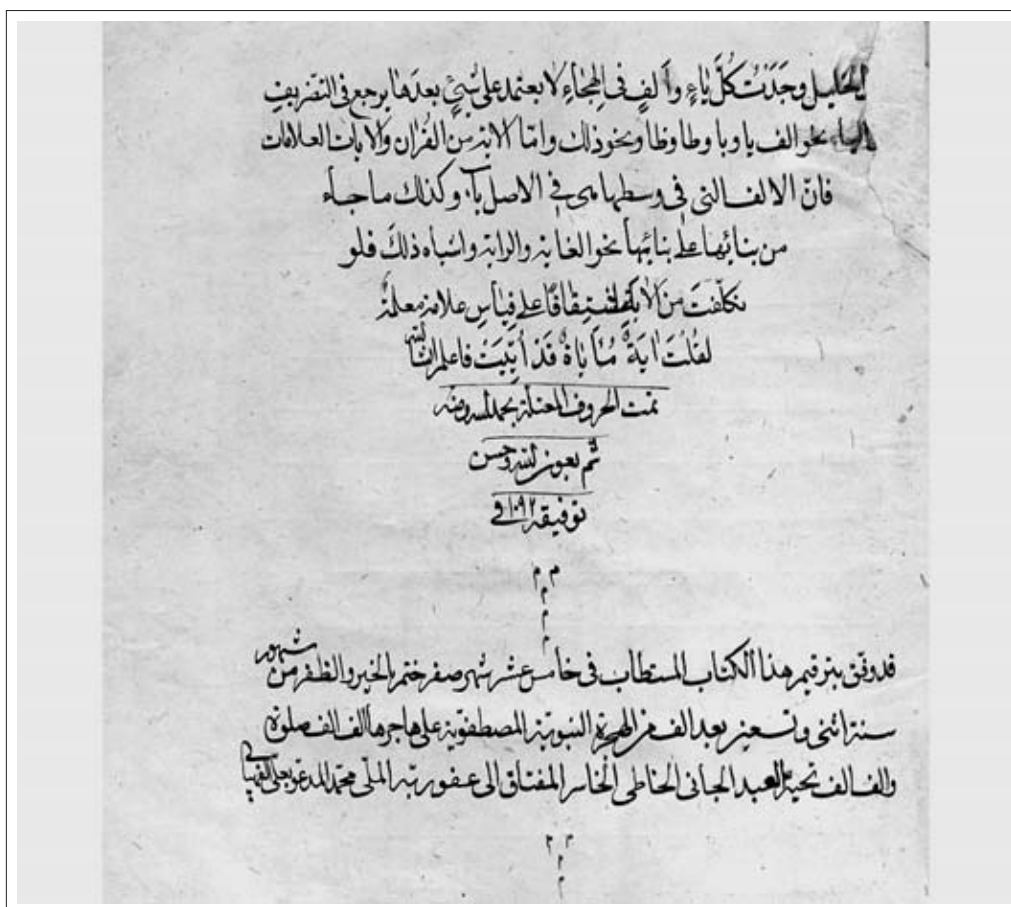 الخليل وجَدْتُ كُلَّ ياءٍ وأَلفٍ فى الهِجَاءِ لا يعتمد على شَىْءٍ بعدَها يرجع فى التصريفِ
الياء نحو الف يا وبا وطا وظا ونحو ذلك وامّا الاية من القُران والايات العلامات
فانّ الالف التى فى وسطها هى فى الاصل يآء وكذلك ما جاء
من بنائها على بنائها نحو الغاية والراية واشباه ذلكَ فلو
تكلّفتَ من الاية اشتِقاقًا على قِياسِ علامة مَعلمةٌ
لقُلْتَ ايَةٌ مُأيَاةٌ قَدْ اُيِّيَتْ فاعلم ان شا الله
تمت الحروف المعتلة بحمد الله ومنه
ثم بعون الله وحسن
توفيقه ١٠٩٢ فى
م م
م
م
م
قد وفق بترقيم هذا الكتاب المستطاب فى خامس عشر شهر صفر ختم بالخير والظفر من شهور
سنة اثنى وتسعين بعد الف من الهجرة النبوية المصطفوية على هاجرها الف الف صلوة
والف الف تحية العبد الجانى الخاطى الخاسر المفتاق الى عفو ربه الملى محمد المدعو بعلى القهپائى
م م
م
م